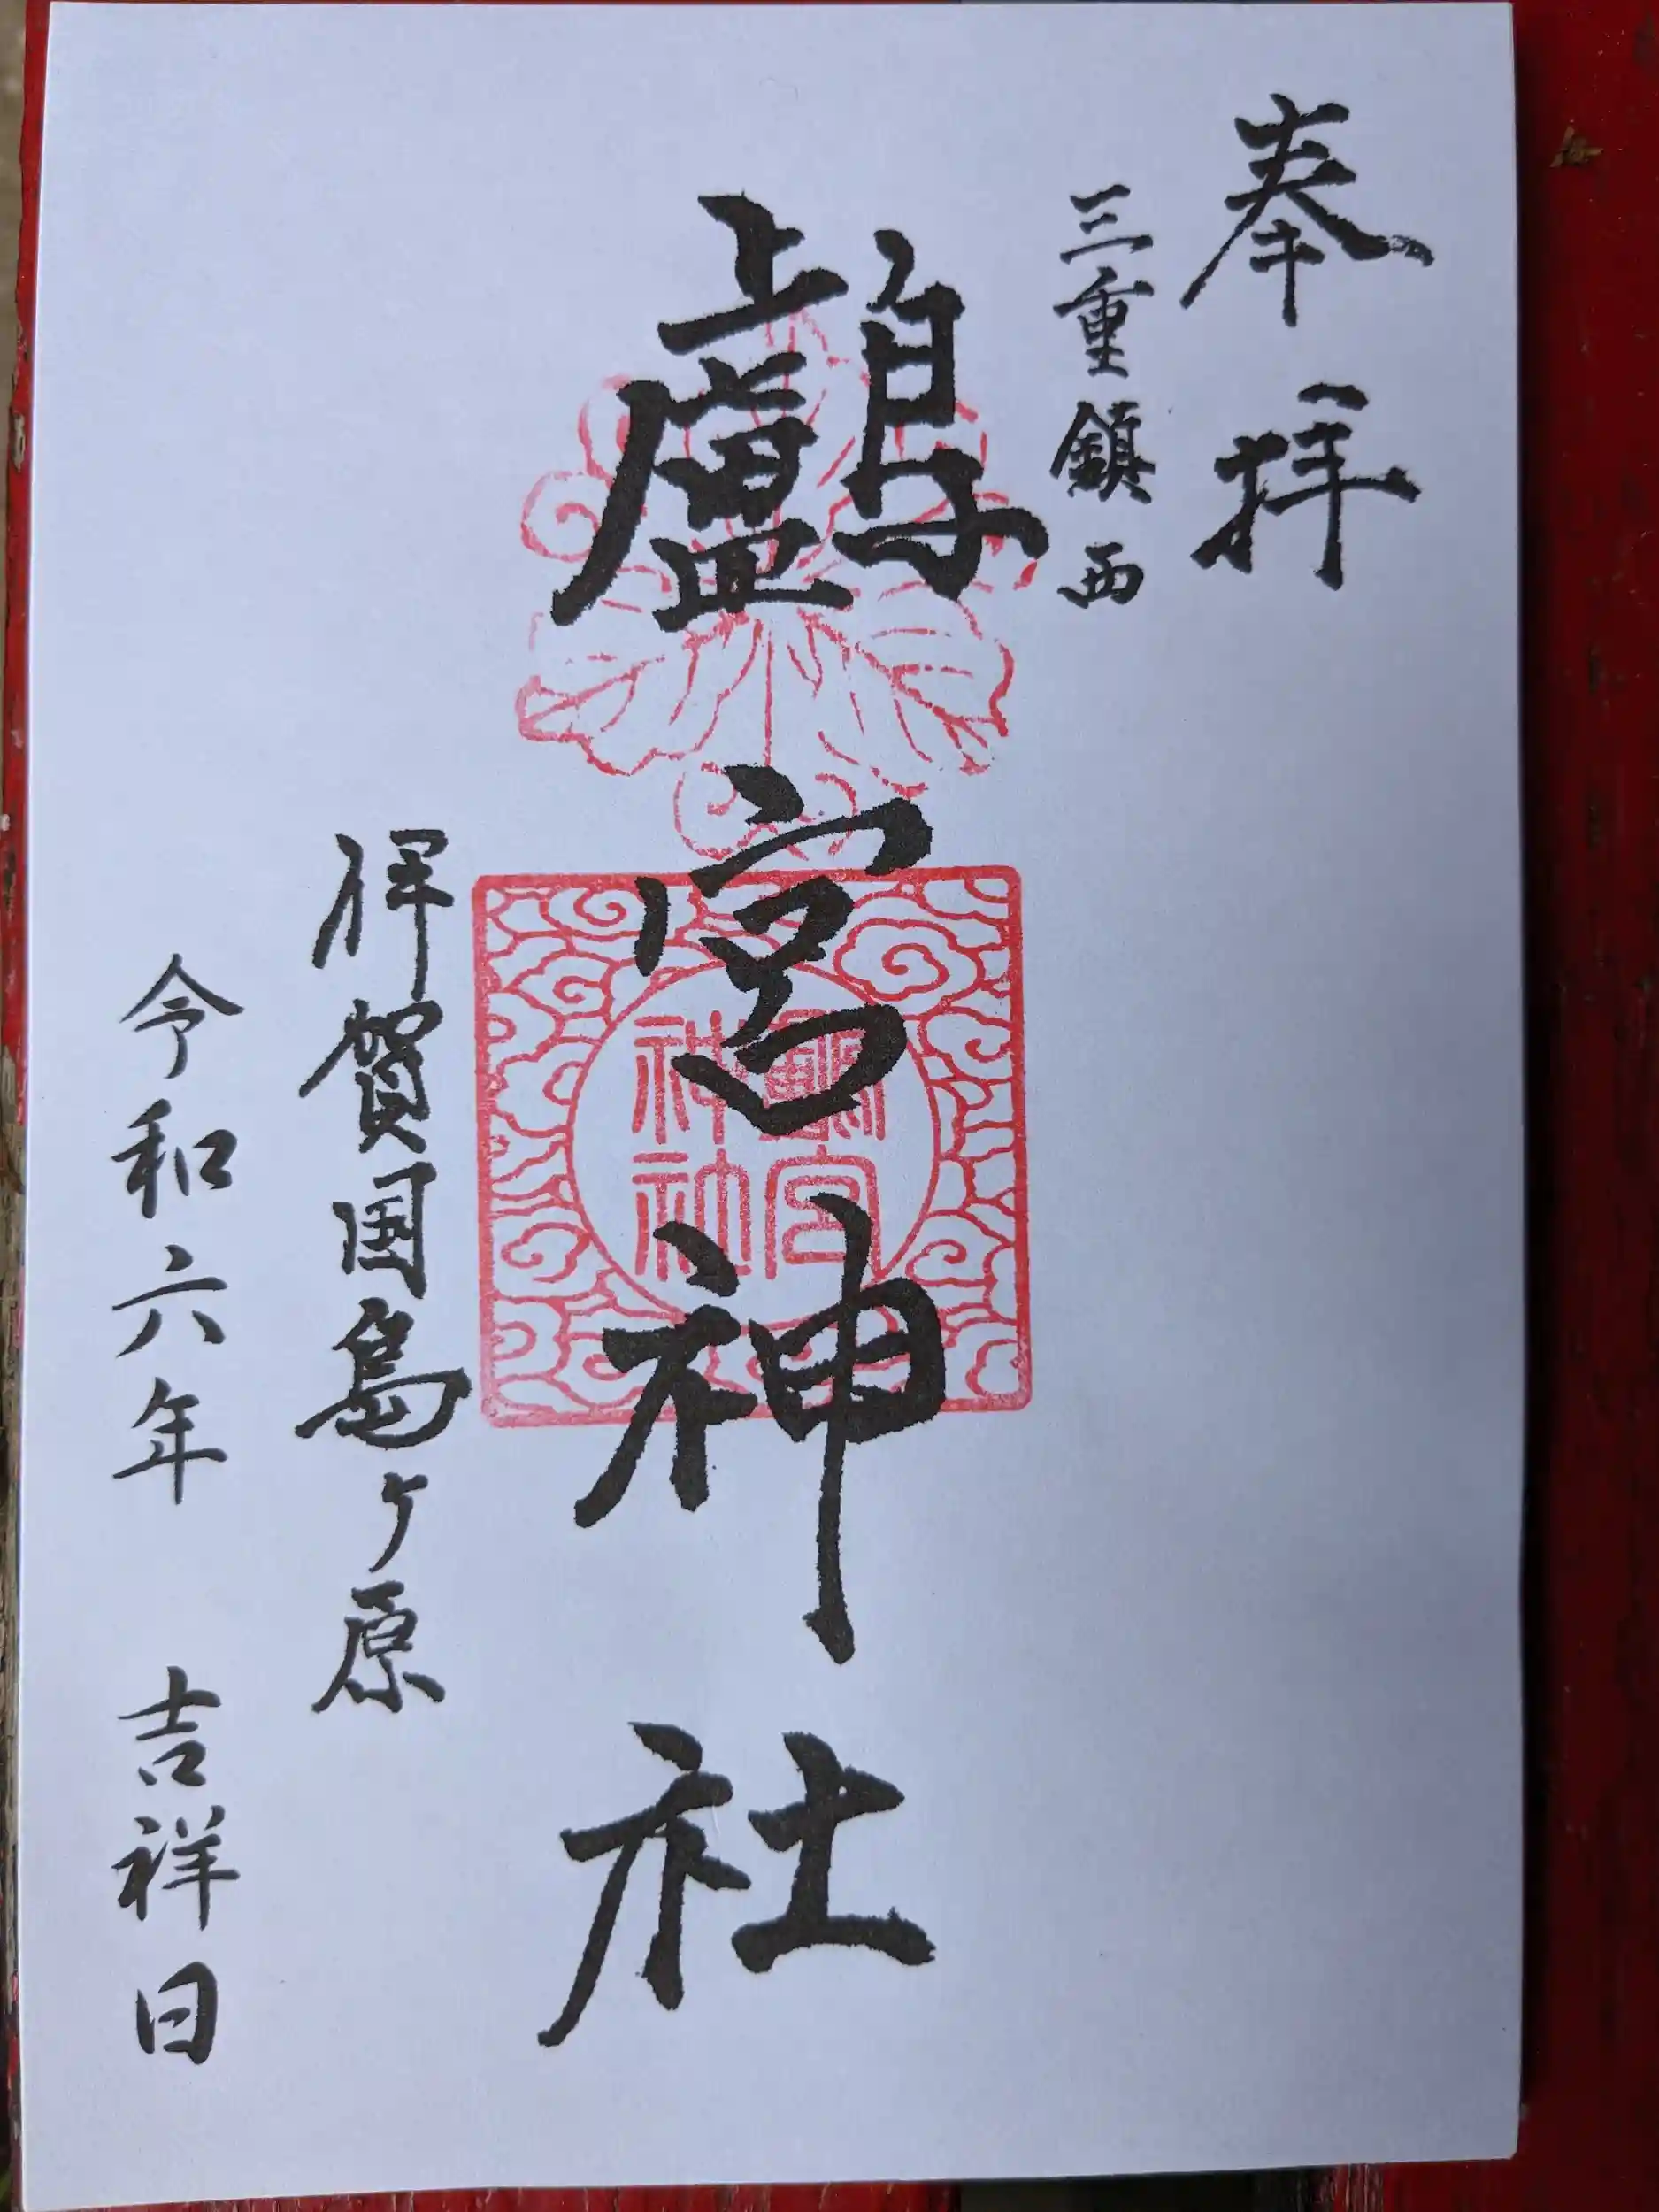 奉拝
三重鎮西
鸕宮神社
伊賀国島ヶ原
令和六年 吉祥日